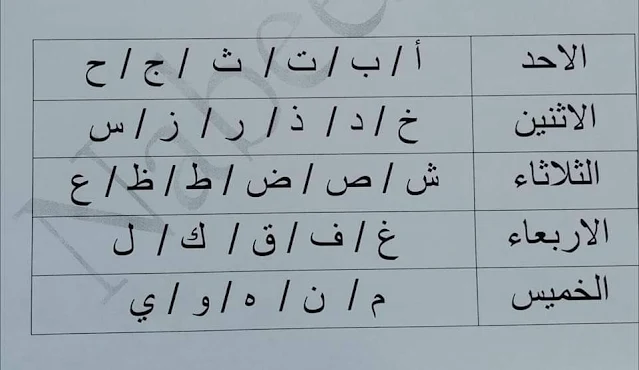 الاحد أ / ب / ت / ث / ج / ح
الاثنين خ / د / ذ / ر / ز / س
الثلاثاء ش / ص / ض / ط / ظ / ع
الاربعاء غ / ف / ق / ك / ل
الخميس م / ن / ه / و / ي
Nabee